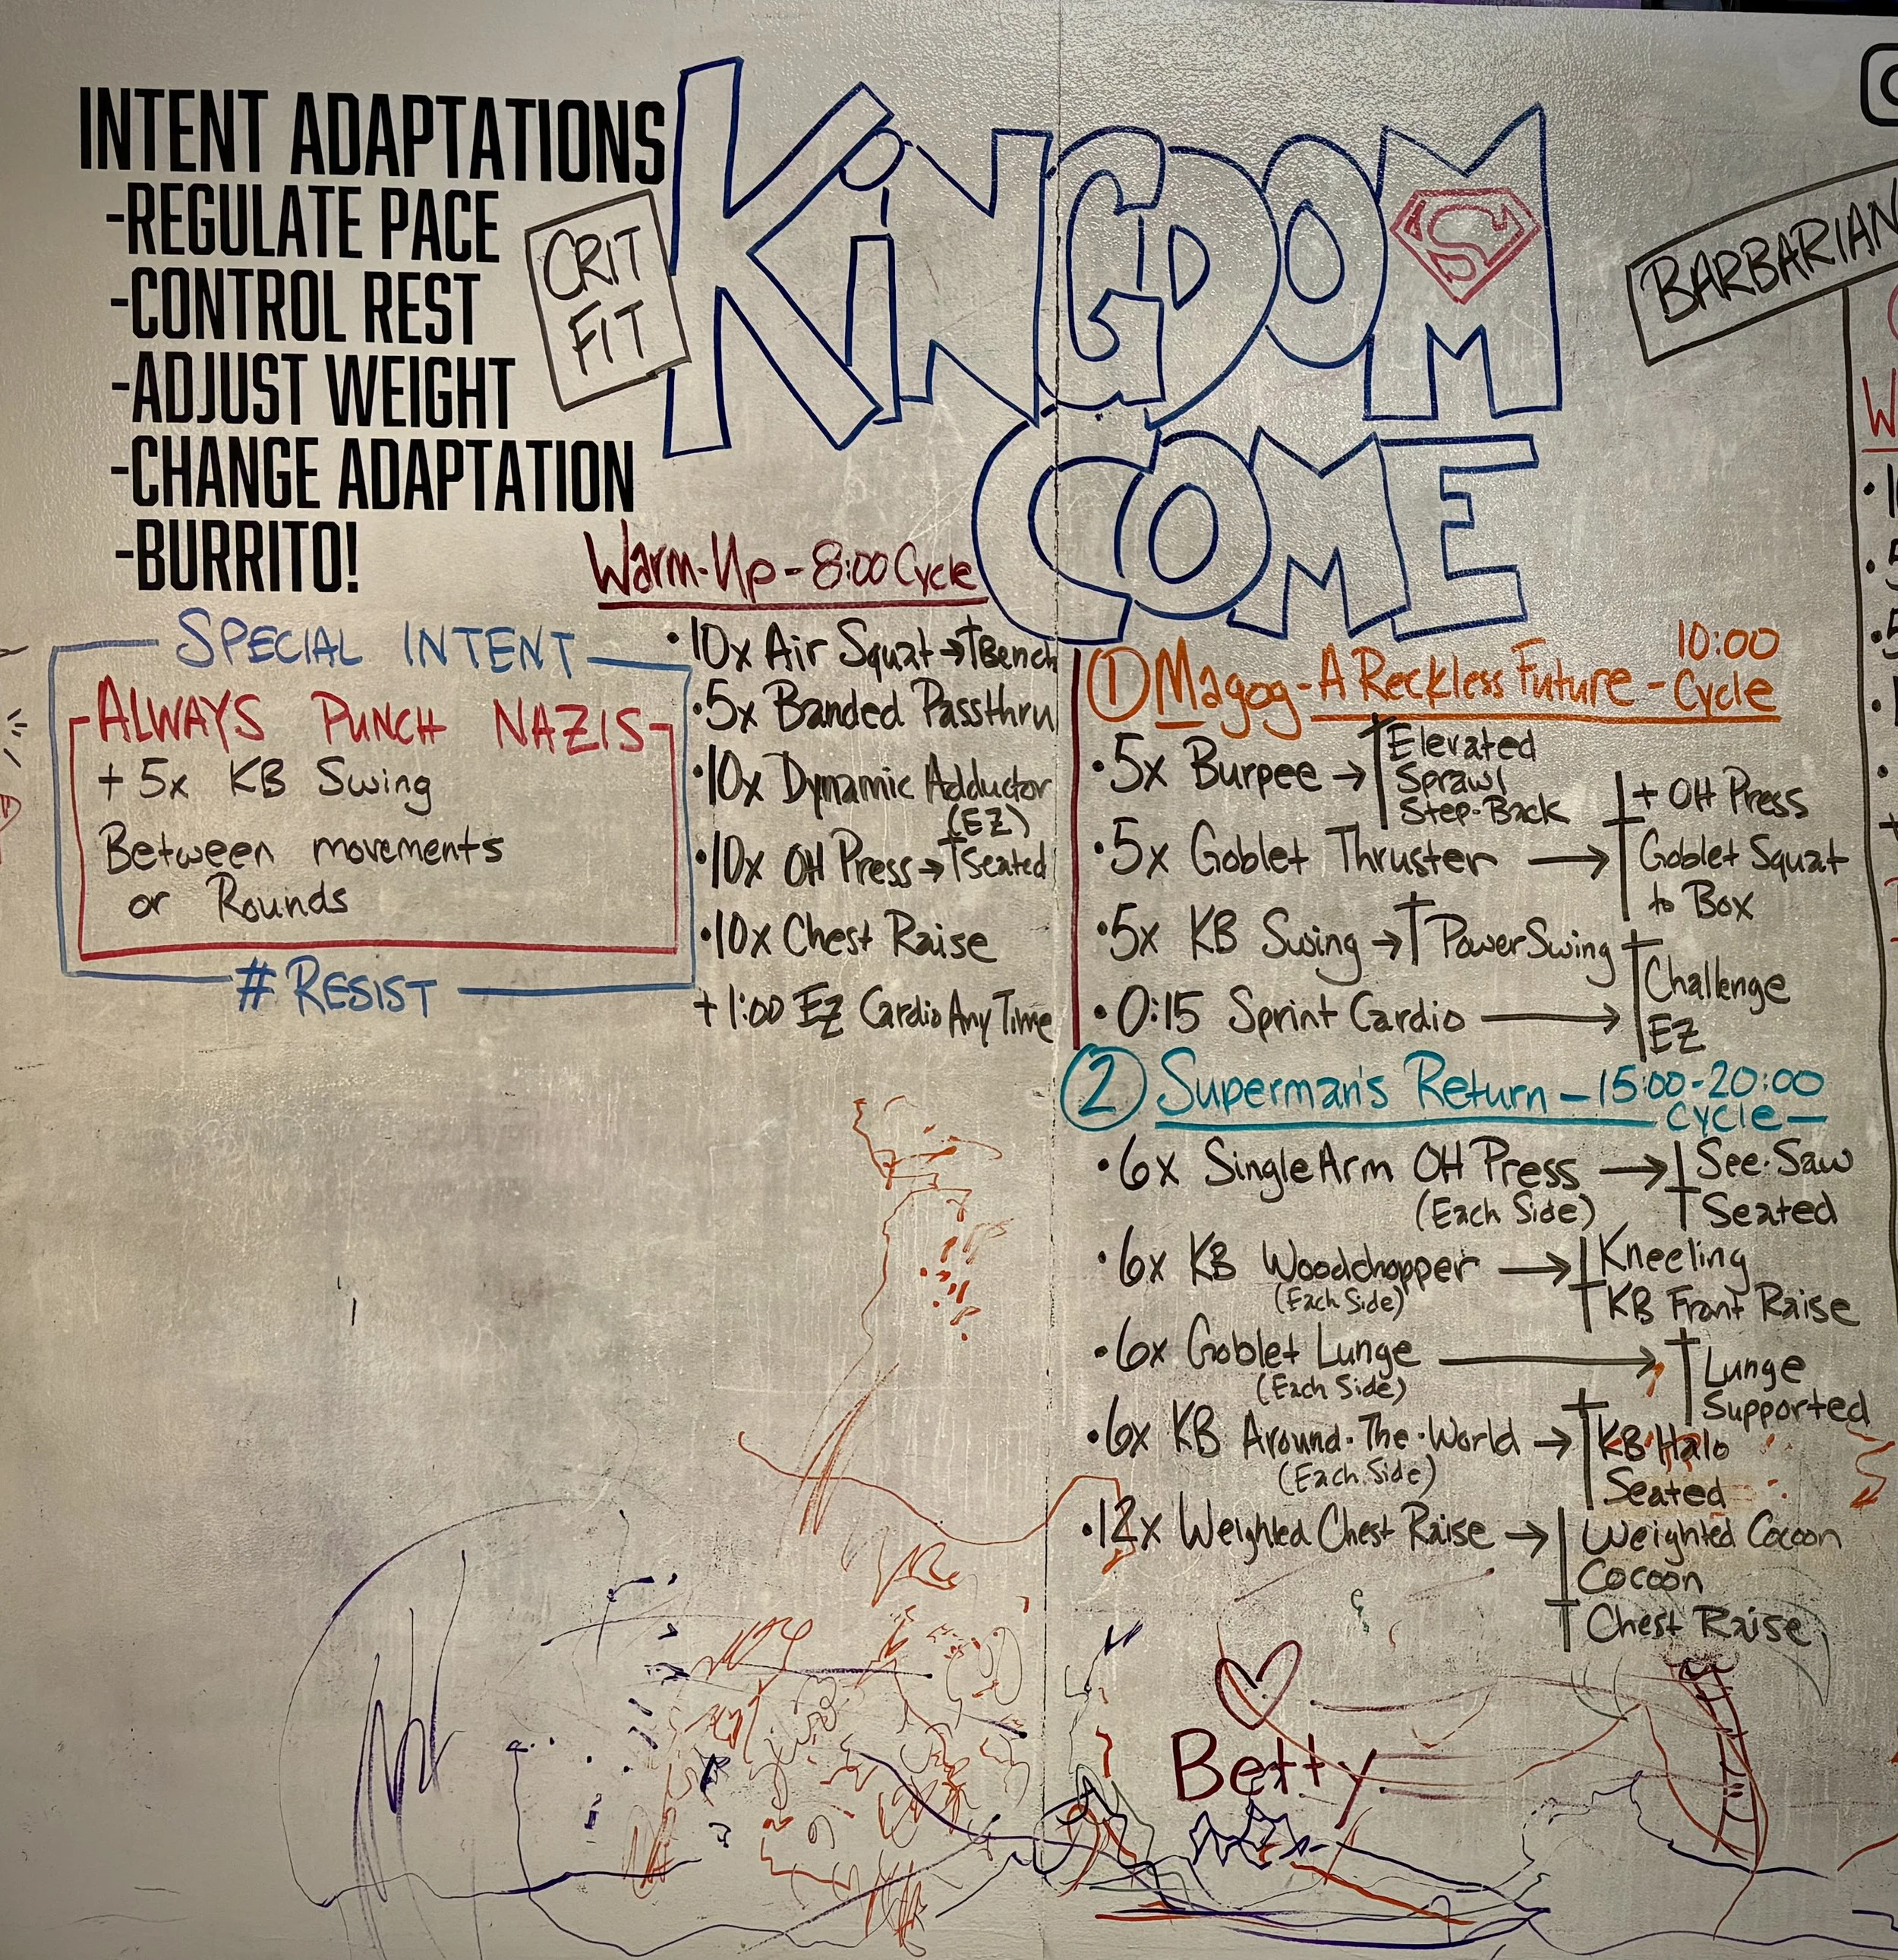 INTENT ADAPTATIONS
-REGULATE PACE
-CONTROL REST
-ADJUST WEIGHT
-CHANGE ADAPTATION
-BURRITO!
CRIT
FIT
KiNGDOM
S
COME
BARBARIAN
SPECIAL INTENT
ALWAYS PUNCH NAZIS
+ 5x KB Swing
Between movements
or Rounds
# RESIST
Warm-Up - 8:00 Cycle
•10x Air Squat → Bench
•5x Banded Passthru
•10x Dynamic Adductor
(EZ)
•10x OH Press → Seated
•10x Chest Raise
+ 1:00 EZ Cardio Any Time
① Magog - A Reckless Future - 10:00
Cycle
•5x Burpee → Elevated
Sprawl
Step-Back
•5x Goblet Thruster → + OH Press
Goblet Squat
to Box
•5x KB Swing → Power Swing
•0:15 Sprint Cardio → Challenge
EZ
② Superman's Return - 15:00-20:00
Cycle -
•6x Single Arm OH Press → See-Saw
(Each Side) Seated
•6x KB Woodchopper → Kneeling
(Each Side) KB Front Raise
•6x Goblet Lunge → Lunge
(Each Side) Supported
•6x KB Around-The-World → KB Halo
(Each Side) Seated
•12x Weighted Chest Raise → Weighted Cocoon
Cocoon
Chest Raise
Betty